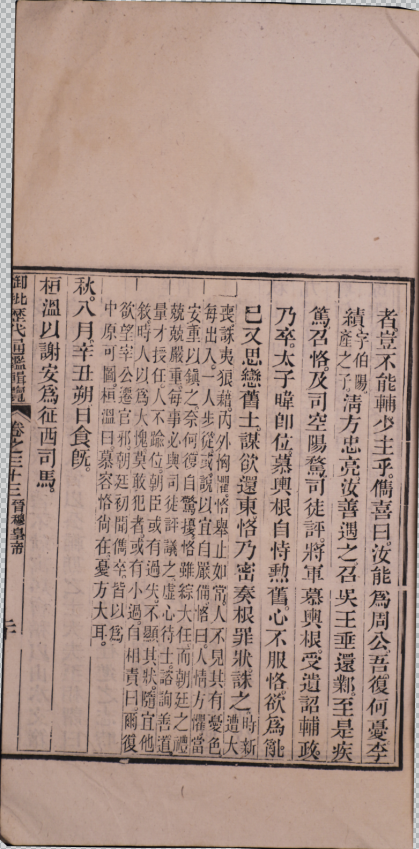 者豈不能輔少主乎。儁喜曰。汝能爲周公。吾復何憂。李
績字伯陽產之子。淸方忠亮。汝善遇之。召吳王垂還鄴。至是疾
篤。召恪及司空陽騖。司徒評。將軍慕輿根受遺詔輔政。
乃卒。太子暐卽位。慕輿根自恃勲舊。心不服恪。欲爲亂。
已又思戀舊土。謀欲還東。恪乃密奏根罪狀誅之。時新遭大
喪誅夷狼藉。內外恟懼。恪舉止如常。人不見其有憂色
每出入。一人步從。或說以宜自嚴備。恪曰。人情方懼。當
安重以鎮之。奈何復自驚擾。恪雖綜大任。而朝廷之禮
兢兢嚴重。每事必與司徒評議之。虛心待士。諮詢善道
量才授任。人不踰位。朝臣或有過失。不顯其狀。隨宜他
敘。時人以爲大愧。莫敢犯者。或有小過。自相責曰。爾復
欲望宰公遷官邪。朝廷初聞儁卒。皆以爲
中原可圖。桓溫曰。慕容恪尚在。憂方大耳。
秋。八月。辛丑朔。日食旣。
桓溫以謝安爲征西司馬。
御批歷代通鑑輯覽 卷之三十三 晉穆皇帝